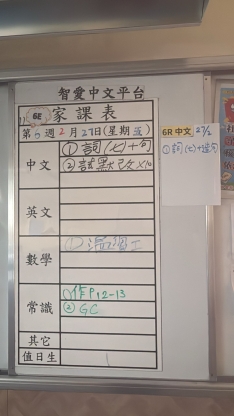 智愛中文平台
6E
家課表
第6週2月27日(星期五)
中文
①詞(七)+句
②試默改×10
英文
數學
常識
①作P12-13
②GC
其它
值日生
6R 中文 27/2
①詞(七)+造句